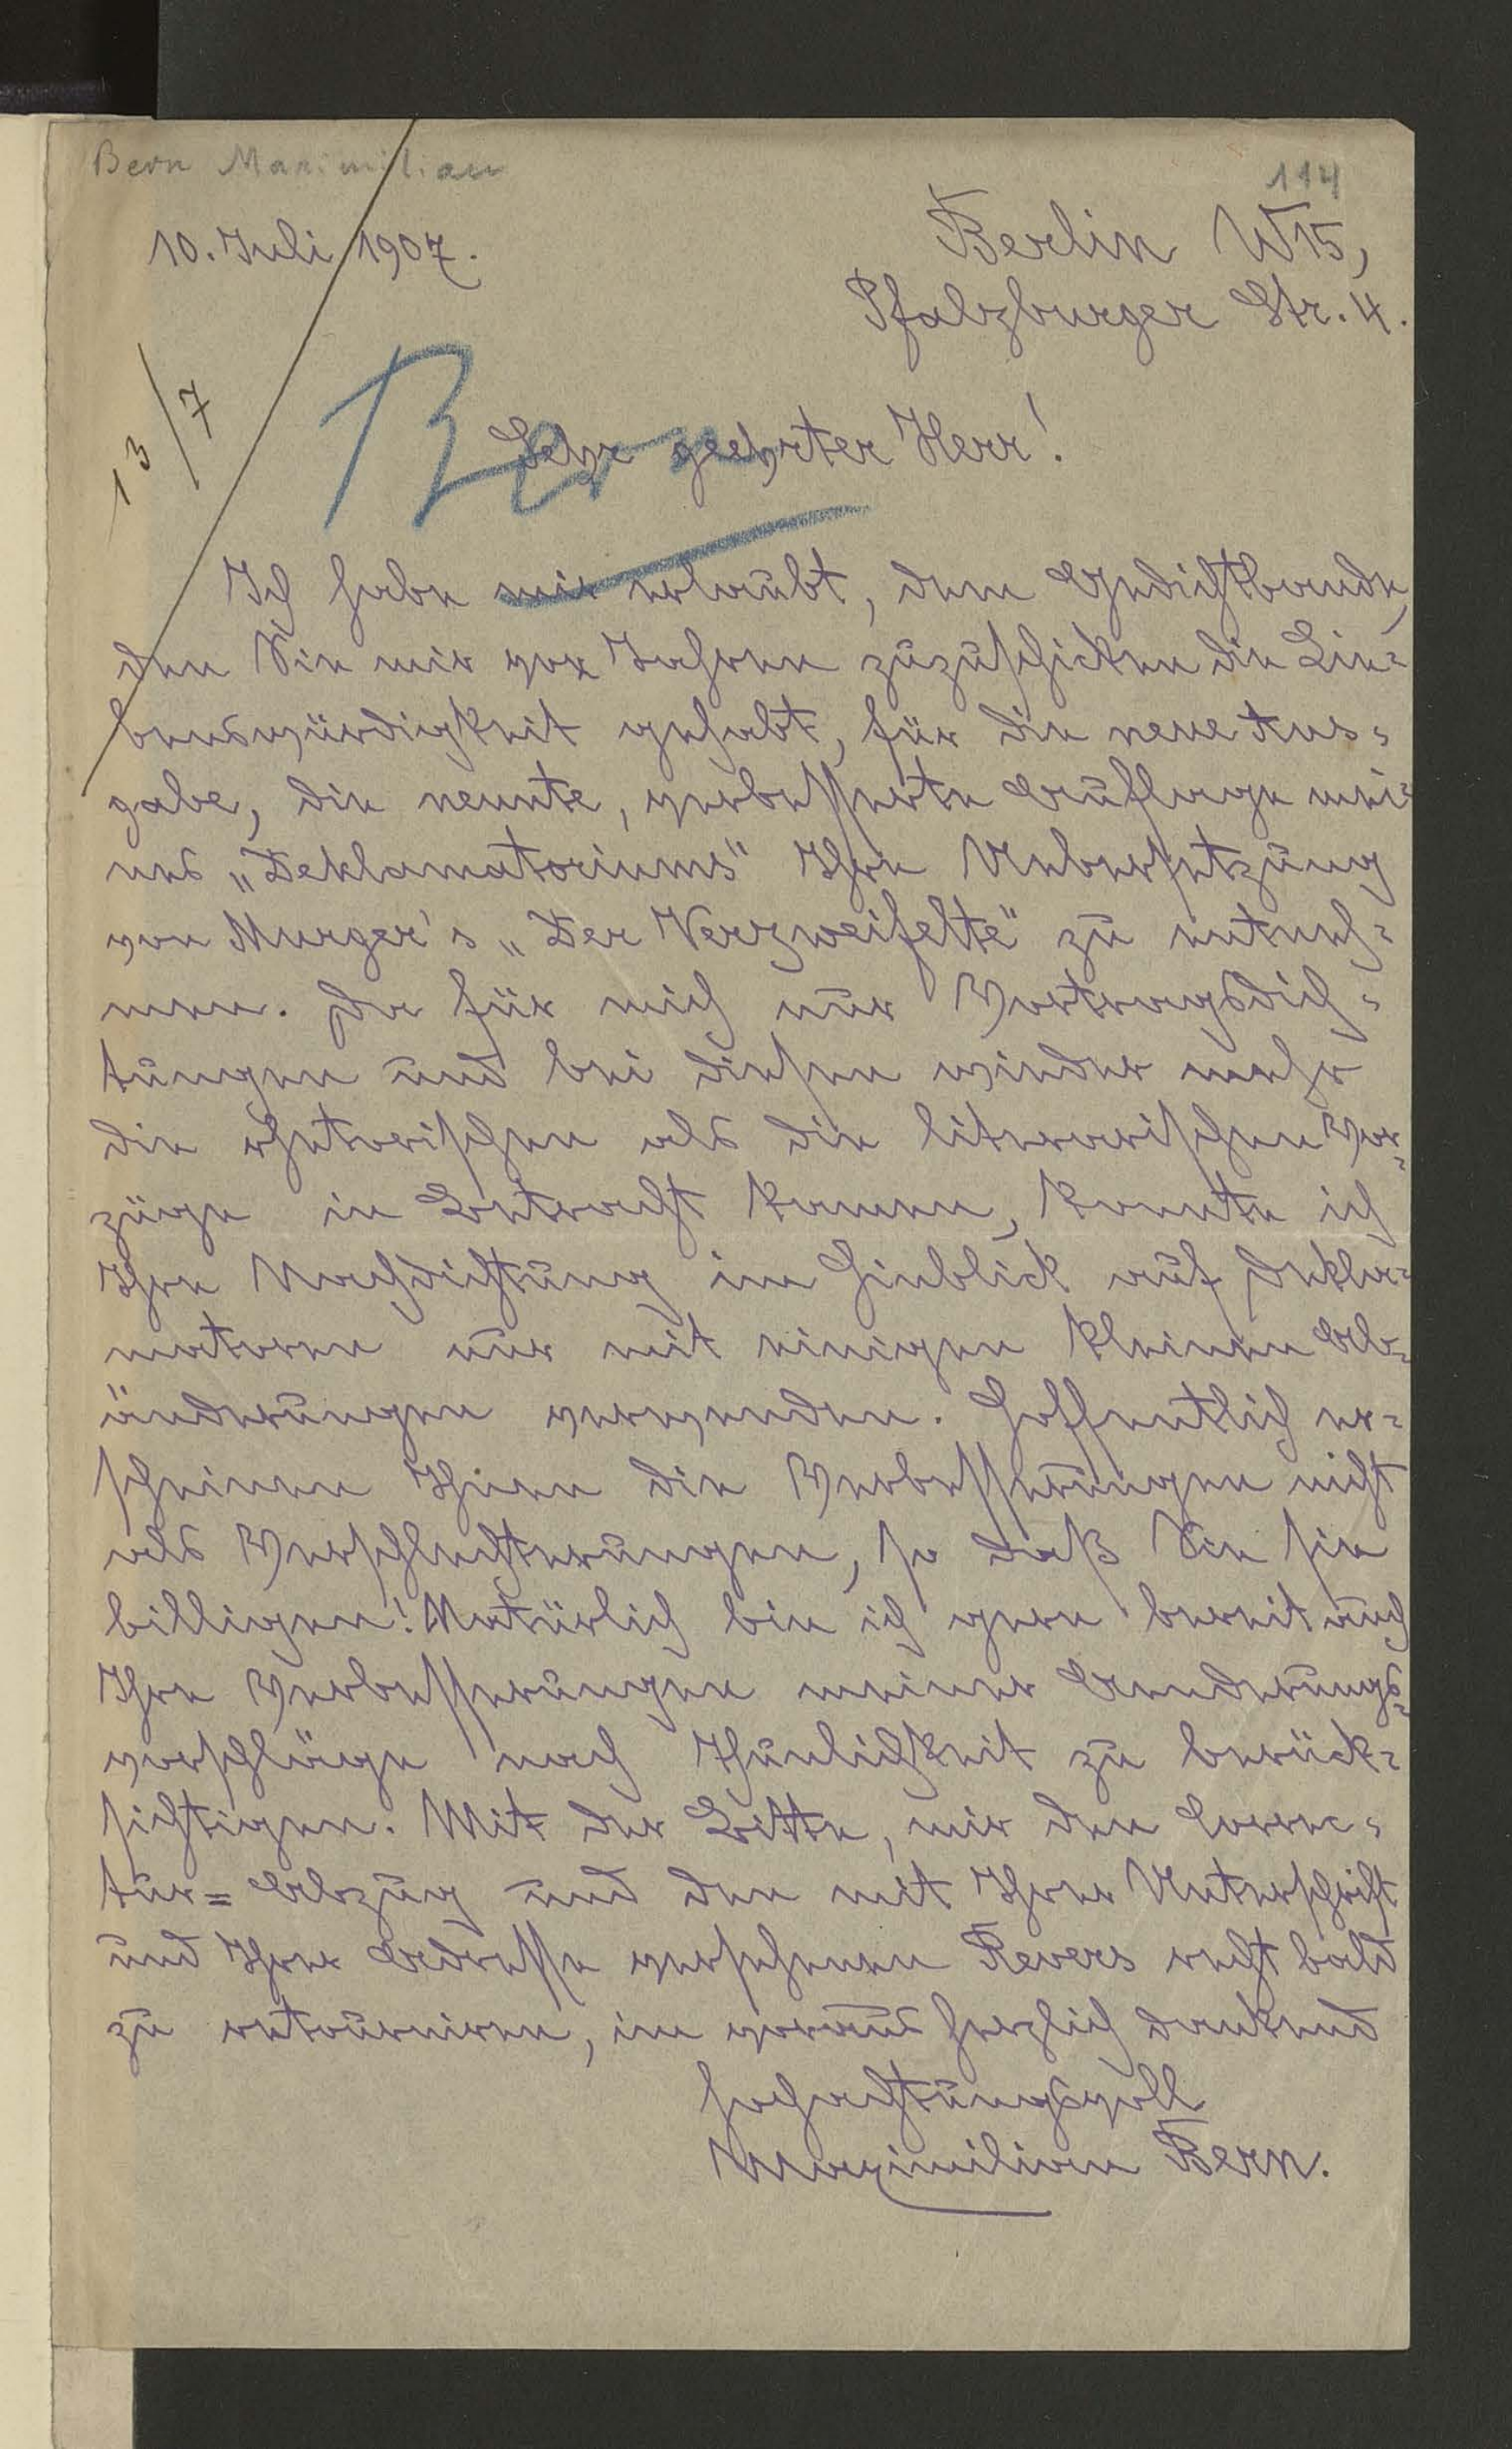 Bern Maximilian
114
10. Juli 1907.
Berlin W15,
Pfalzburger Str. 4.
13/7
Bern
Sehr geehrter Herr!
Ich habe mir erlaubt, dem Gedichtbande,
den Sie mir vor Jahren zuzuschicken die Lie-
benswürdigkeit gehabt, für die neue Aus-
gabe, die neunte, verbesserte Auflage mei-
nes „Deklamatoriums" Ihre Uebersetzung
von Murger's „Der Verzweifelte" zu entneh-
men. Da für mich nur Vortragsdich-
tungen und bei diesen wieder mehr
die rhetorischen als die literarischen Vor-
züge in Betracht kamen, konnte ich
Ihre Nachdichtung im Hinblick auf Dekla-
matoren nur mit einigen kleinen Ab-
änderungen verwenden. Hoffentlich er-
scheinen Ihnen die Verbesserungen nicht
als Verschlechterungen, so daß Sie sie
billigen! Natürlich bin ich gern bereit auch
Ihre Verbesserungen meiner Aenderungs-
vorschläge nach Thunlichkeit zu berück-
sichtigen. Mit der Bitte, mir den Correc-
tur-Abzug und den mit Ihrer Unterschrift
und Ihrer Adresse versehenen Revers recht bald
zu retourniren, im voraus herzlich dankend
hochachtungsvoll
Maximilian Bern.